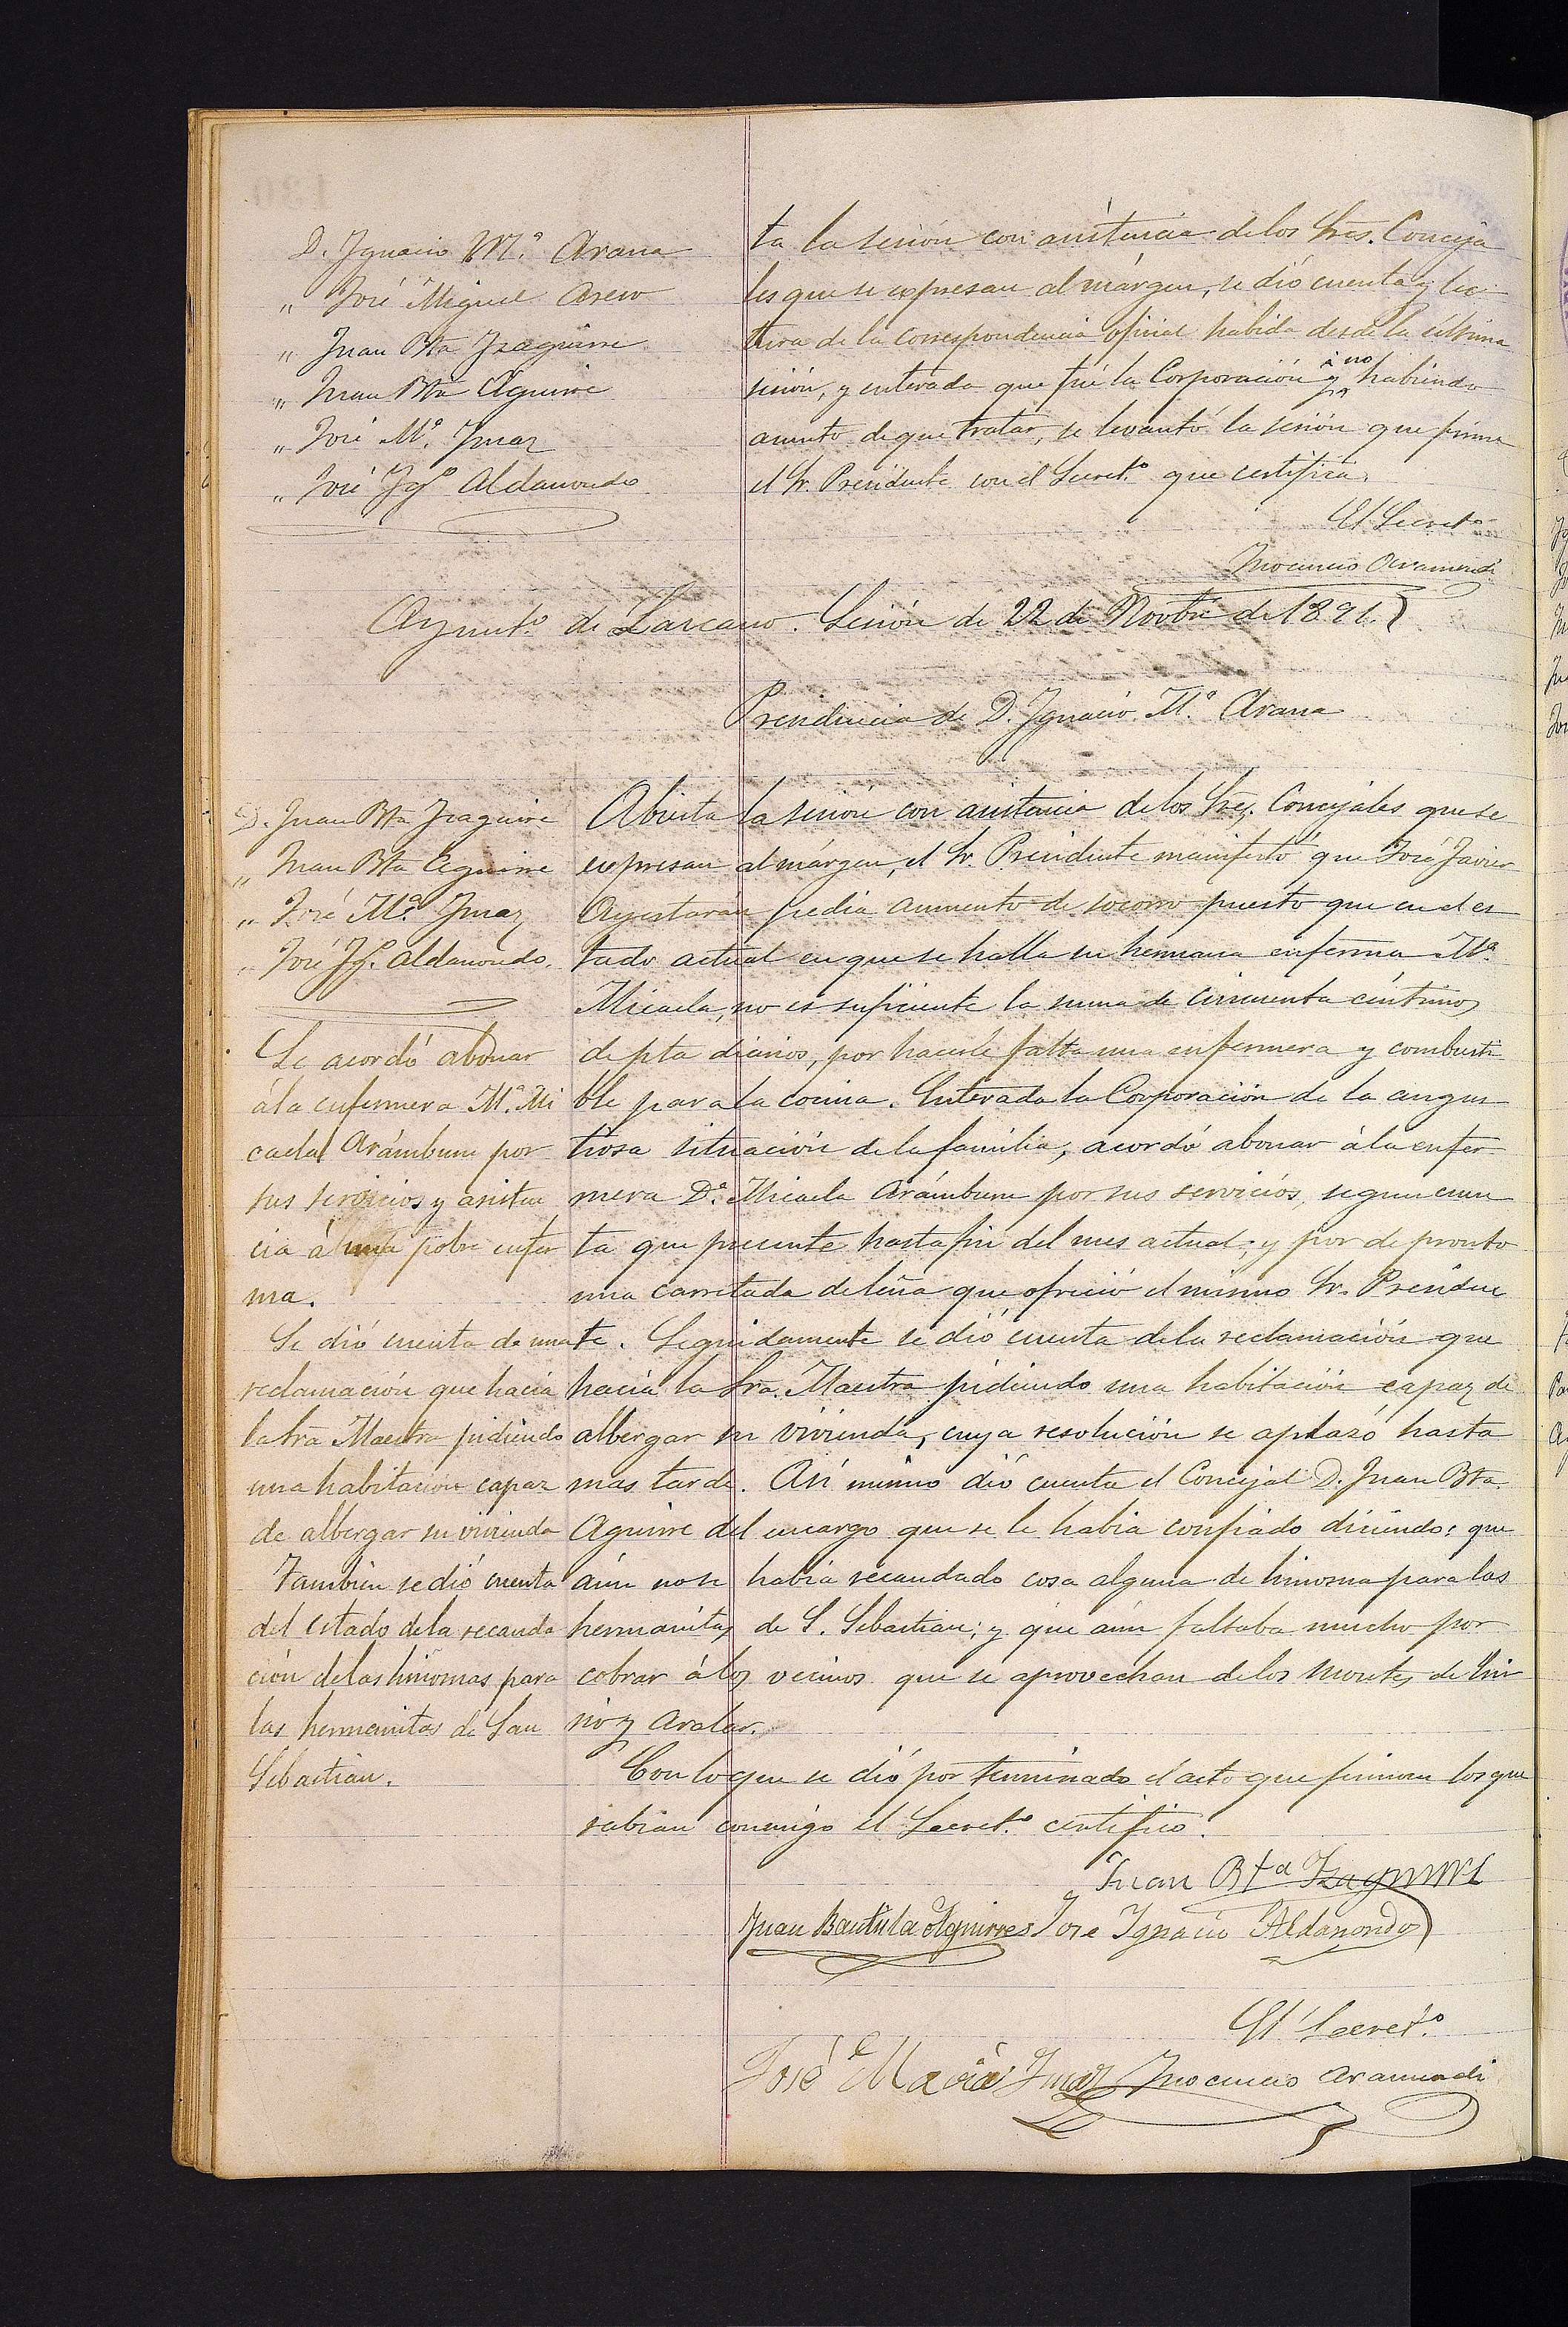 D. Ygnacio M.ª Arana
„ José Miguel Aseso
„ Juan Bta Yzaguirre
„ Juan Bta Aguirre
„ José M.ª Ymaz
„ José Yg.º Aldanondo
ta la sesión con asistencia de los Sres. Conceja
les que se expresan al márgen, se dió cuenta y lec
tura de la correspondencia oficial habida desde la última
sesión, y enterada que fué la Corporación y no habiendo
asunto de que tratar, se levantó la sesión que firma
el Sr. Presidente con el Secret.º que certifica.
El Secret.º
Ynocencio Aramendi
Ayunt.º de Lazcano. Sesión de 22 de Novbre de 1891.
Presidencia de D. Ygnacio M.ª Arana
D. Juan Bta Yzaguirre
„ Juan Bta Aguirre
„ José M.ª Ymaz
„ José Yg.º Aldanondo.
Se acordó abonar
á la enfermera M.ª Mi
caela Arámburu por
sus servicios y asisten
cia á una pobre enfer
ma.
Se dió cuenta de una
reclamación que hacia
la Sra Maestra pidiendo
una habitación capaz
de albergar su vivienda
Tambien se dió cuenta
del estado de la recauda
ción de las limosnas para
las hermanitas de San
Sebastian.
Abierta la sesión con asistencia de los Sres. Concejales que se
expresan al márgen, el Sr. Presidente manifestó que José Javier
Ayestarán pedia aumento de socorro puesto que en el es
tado actual en que se halla su hermana enferma M.ª
Micaela, no es suficiente la suma de cincuenta céntimos
de pta diarios, por hacerle falta una enfermera y combusti
ble para la cocina. Enterada la Corporación de la angus
tiosa situación de la familia, acordó abonar á la enfer
mera D.ª Micaela Arámburu por sus servicios, segun cuen
ta que presente hasta fin del mes actual; y por de pronto
una carretada de leña que ofreció el mismo Sr. Presiden
te. Seguidamente se dió cuenta de la reclamación que
hacia la Sra. Maestra pidiendo una habitación capaz de
albergar su vivienda, cuya resolución se aplazó hasta
mas tarde. Asi mismo dió cuenta el Concejal D. Juan Bta.
Aguirre del encargo que se le habia confiado diciendo: que
aún no se habia recaudado cosa alguna de limosna para las
hermanitas de S. Sebastian; y que aún faltaba mucho por
cobrar á los vecinos que se aprovechan de los montes de Eni
rio y Aralar.
Con lo que se dió por terminado el acto que firman los que
sabian conmigo el Secret.º certifico.
Juan Bta Yzaguirre
Juan Bautista Aguirre José Ygnacio Aldanondo
El Secret.º
José Maria Ymaz Ynocencio Aramendi